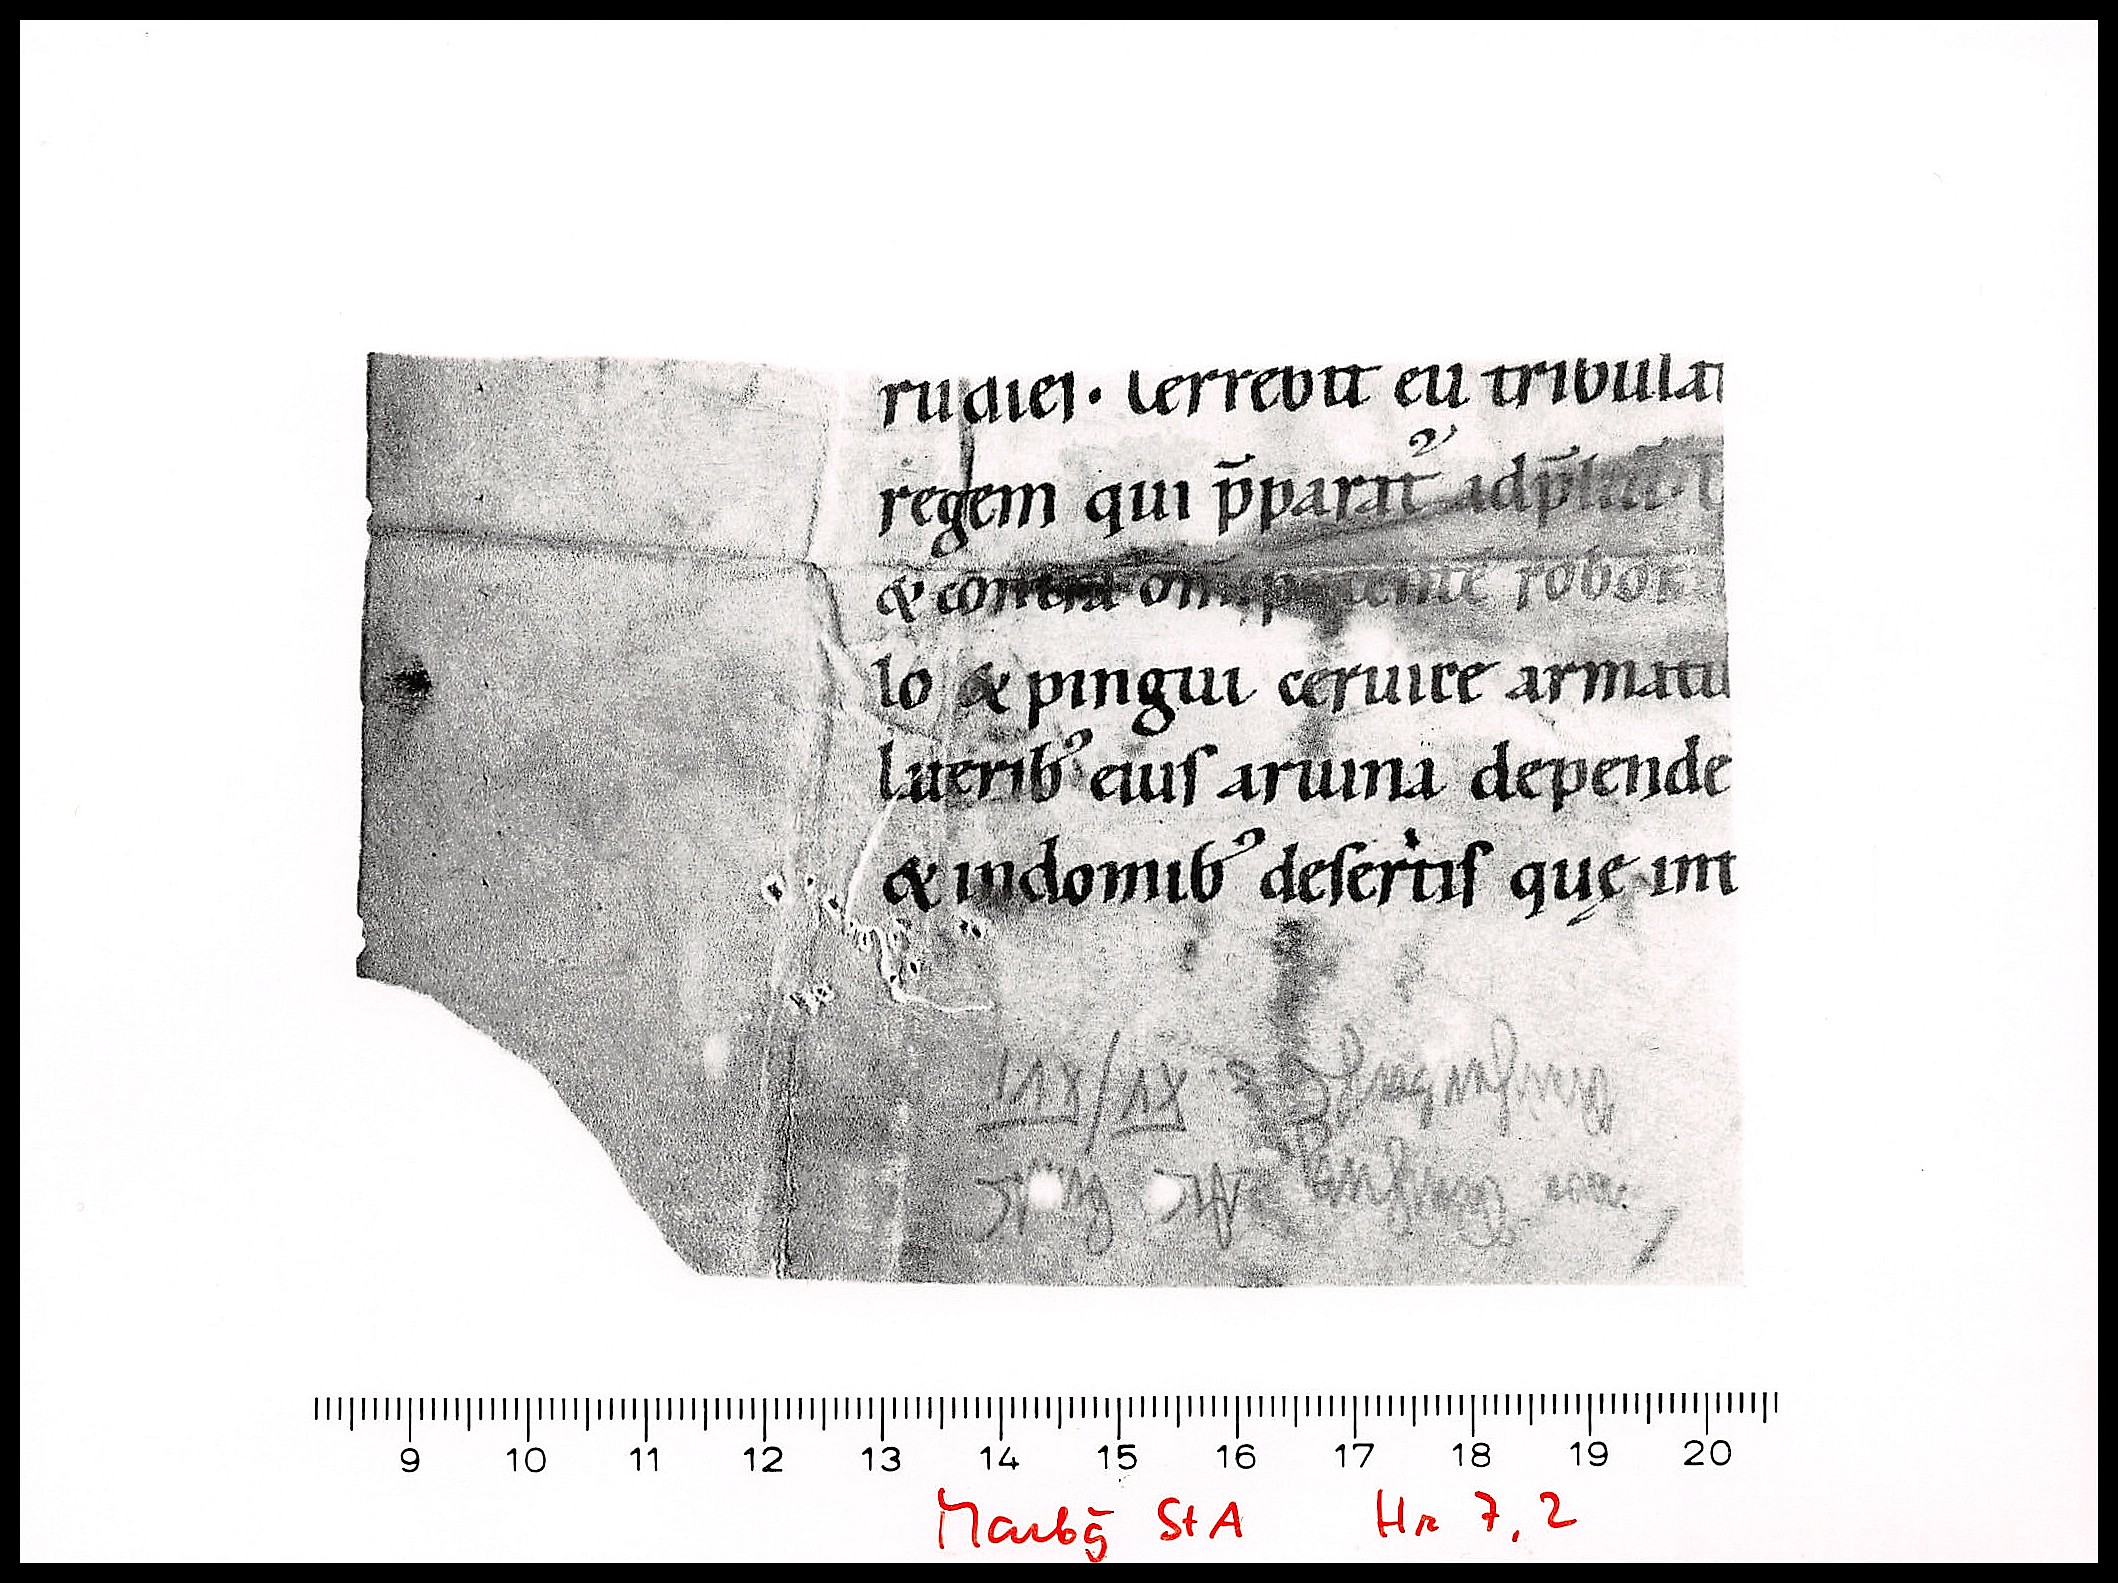 rudief. Terrebit eū tribulat
regem qui p̄parat᷑ adp̄liū. T
& contra omīpotentē robor
lo & pingui ceruice armatu
laterib᷒ eius aruina depende
& indomib᷒ desertis quę int
9 10 11 12 13 14 15 16 17 18 19 20
Marbḡ StA Hr 7,2